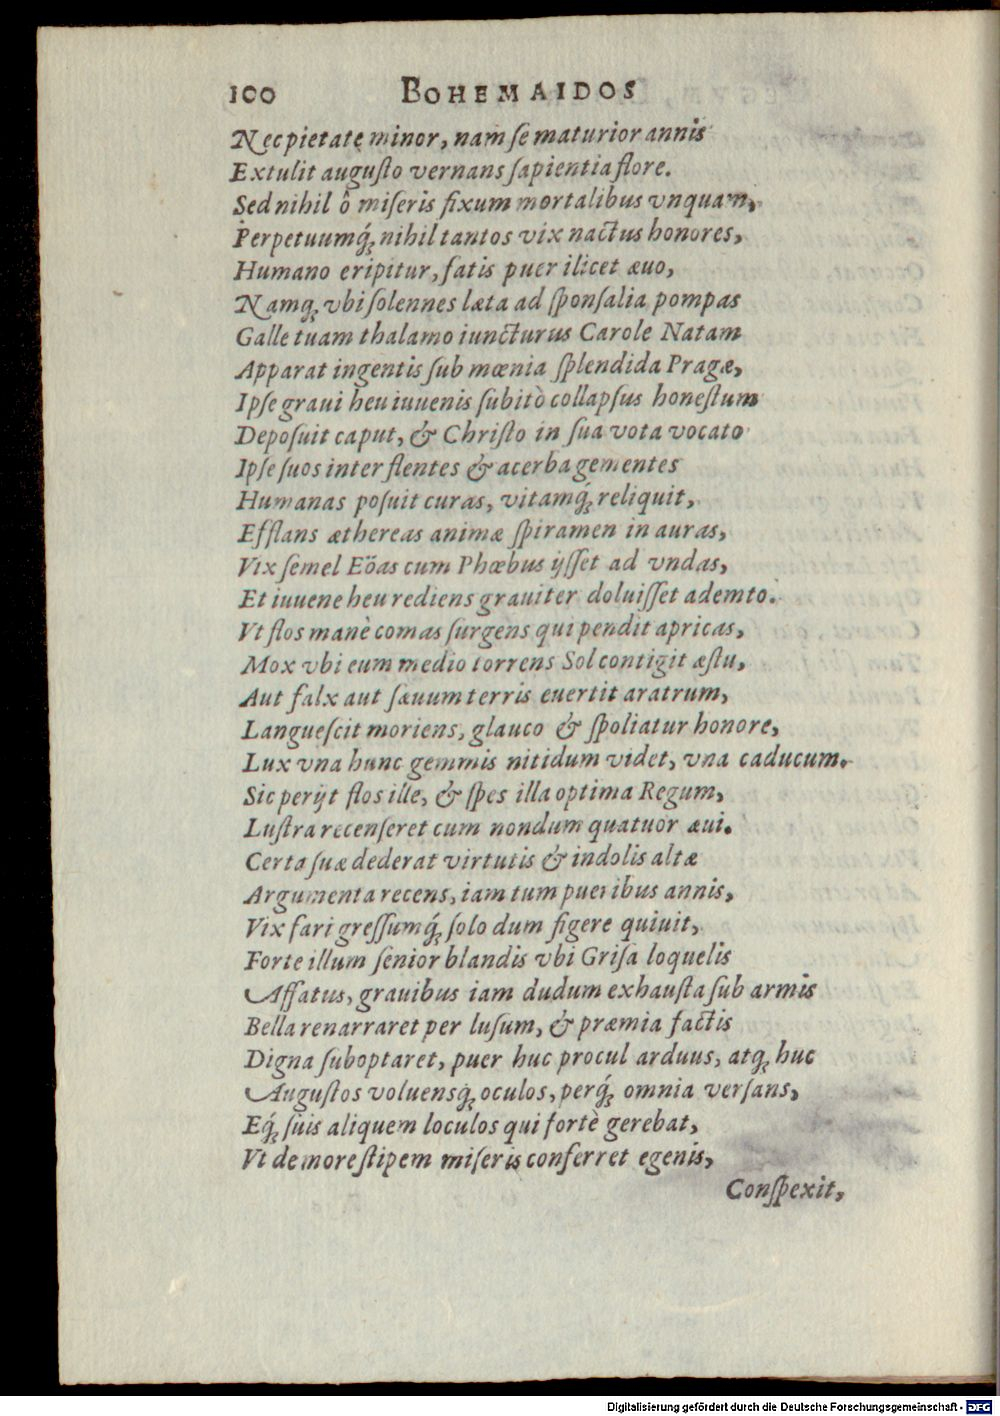 100 BOHEMAIDOS
Nec pietate minor, nam se maturior annis
Extulit augusto vernans sapientia flore.
Sed nihil ô miseris fixum mortalibus vnquam,
Perpetuumq́; nihil tantos vix nactus honores,
Humano eripitur, fatis puer ilicet æuo,
Namq; vbi solennes læta ad sponsalia pompas
Galle tuam thalamo iuncturus Carole Natam
Apparat ingentis sub mœnia splendida Pragæ,
Ipse graui heu iuuenis subitò collapsus honestum
Deposuit caput, & Christo in sua vota vocato
Ipse suos inter flentes & acerba gementes
Humanas posuit curas, vitamq́; reliquit,
Efflans æthereas animæ spiramen in auras,
Vix semel Eöas cum Phœbus ijsset ad vndas,
Et iuuene heu rediens grauiter doluisset ademto.
Vt flos manè comas surgens qui pendit apricas,
Mox vbi eum medio torrens Sol contigit æstu,
Aut falx aut sæuum terris euertit aratrum,
Languescit moriens, glauco & spoliatur honore,
Lux vna hunc gemmis nitidum videt, vna caducum.
Sic perijt flos ille, & spes illa optima Regum,
Lustra recenseret cum nondum quatuor æui.
Certa suæ dederat virtutis & indolis altæ
Argumenta recens, iam tum pueribus annis,
Vix fari gressumq́; solo dum figere quiuit,
Forte illum senior blandis vbi Grisa loquelis
Affatus, grauibus iam dudum exhausta sub armis
Bella renarraret per lusum, & præmia factis
Digna suboptaret, puer huc procul arduus, atq; huc
Augustos voluensq́; oculos, perq́; omnia versans,
Eq́; suis aliquem loculos qui fortè gerebat,
Vt de more stipem miseris conferret egenis,
Conspexit,
Digitalisierung gefördert durch die Deutsche Forschungsgemeinschaft - DFG